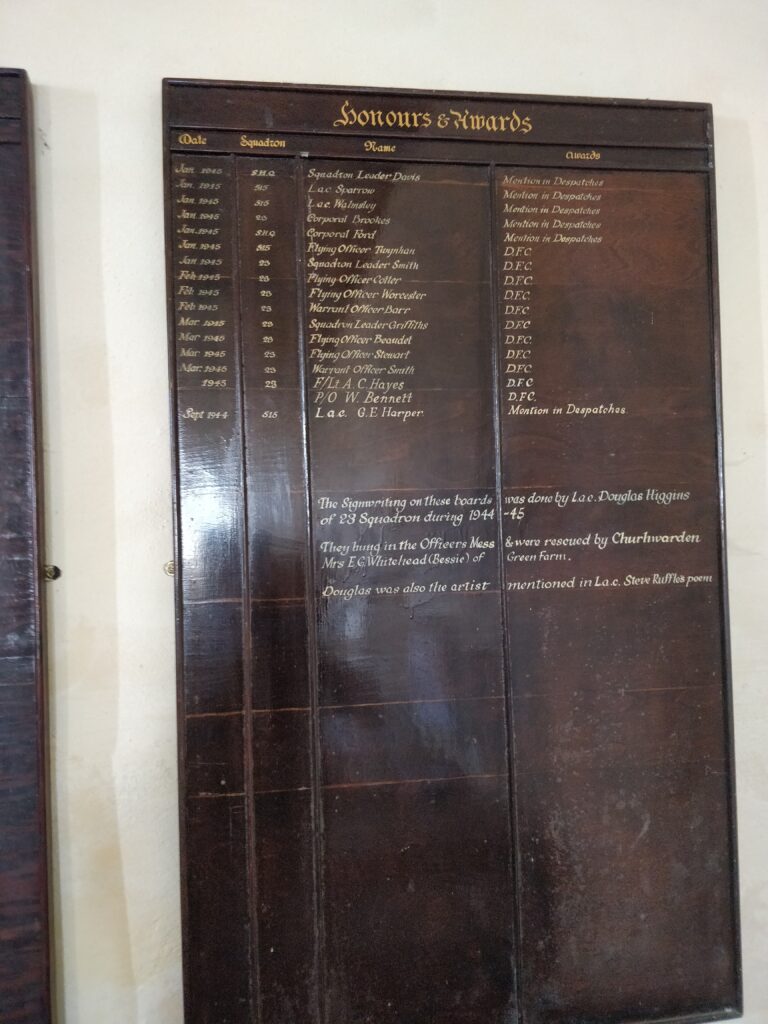 Honours & Awards
Date Squadron Name Awards
Jan. 1945 S.H.Q Squadron Leader Davis Mention in Despatches
Jan. 1945 515 L.a.c. Sparrow Mention in Despatches
Jan. 1945 515 L.a.c. Walmsley Mention in Despatches
Jan. 1945 23 Corporal Brookes Mention in Despatches
Jan. 1945 S.H.Q Corporal Ford Mention in Despatches
Jan. 1945 515 Flying Officer D.F.C.
Jan 1945 23 Squadron Leader Smith D.F.C.
Feb 1945 23 Flying Officer Cotter D.F.C.
Feb 1945 23 Flying Officer Worcester D.F.C.
Feb 1945 23 Warrant Officer Barr D.F.C.
Mar. 1945 23 Squadron Leader Griffiths D.F.C
Mar 1945 23 Flying Officer Beaudet D.F.C.
Mar. 1945 23 Flying Officer Stewart D.F.C.
Mar. 1945 23 Warrant Officer Smith D.F.C.
1945 23 F/Lt. A.C. Hayes D.F.C
P/O W. Bennett D.F.C.
Sept 1944 515 L.a.c. G.E Harper. Mention in Despatches
The Signwriting on these boards was done by L.a.c. Douglas Higgins
of 23 Squadron during 1944 -45
They hung in the Officers Mess & were rescued by Churhwarden
Mrs E.C. Whitehead (Bessie) of Green Farm.
Douglas was also the artist mentioned in L.a.c. Steve Ruffle's poem